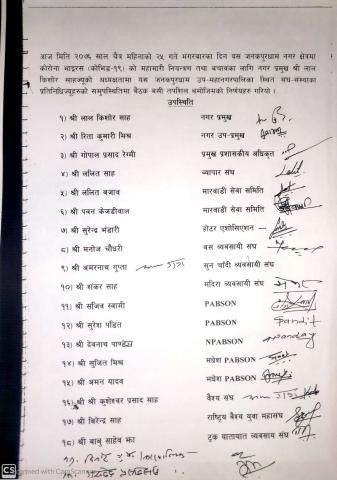 आज मिति २०७६ साल चैत्र महिनाको २५ गते मगरबारका दिन यस जनकपुरधाम नगर क्षेत्रमा
कोरोना भाइरस (कोभिड-१९) को महामारी नियन्त्रण तथा बचावका लागि नगर प्रमुख श्री लाल
किशोर साहज्यूको अध्यक्षतामा यस जनकपुरधाम उप-महानगरपालिका स्थित संघ-संस्थाका
प्रतिनिधिज्यूहरुको समुपस्थितिमा बैठक बसी तपशिल बमोजिमको निर्णयहरु गरियो ।
उपस्थिति
१) श्री लाल किशोर साह नगर प्रमुख
२) श्री रिता कुमारी मिश्र नगर उप-प्रमुख
३) श्री गोपाल प्रसाद रेग्मी प्रमुख प्रशासकीय अधिकृत
४) श्री ललित साह व्यापार संघ Lalit
५) श्री ललित बजाज मारवाडी सेवा समिति
६) श्री पवन केजडीवाल मारवाडी सेवा समिति
७) श्री सुरेन्द्र भंडारी होटर एशोसिएशन
८) श्री मनोज चौधरी वस व्यवसायी संघ
९) श्री अमरनाथ गुप्ता सुन चाँदी व्यवसायी संघ
१०) श्री शंकर साह मदिरा व्यवसायी संघ
११) श्री सजिव स्वामी PABSON
१२) श्री सुरेश पंडित PABSON Pandit
१३) श्री देवनाथ पाण्डेय NPABSON npanday
१४) श्री सुजित मिश्र मधेश PABSON
१५) श्री अमन यादव मधेश PABSON
१६) श्री कुशेश्वर प्रसाद साह वैश्य संघ
१७) श्री बिरेन्द्र साह राष्ट्रिय वैश्य युवा महासंघ
१८) श्री बाबु साहेव झा ट्रक यातायात व्यवसाय संघ
CS Scanned with CamScanner